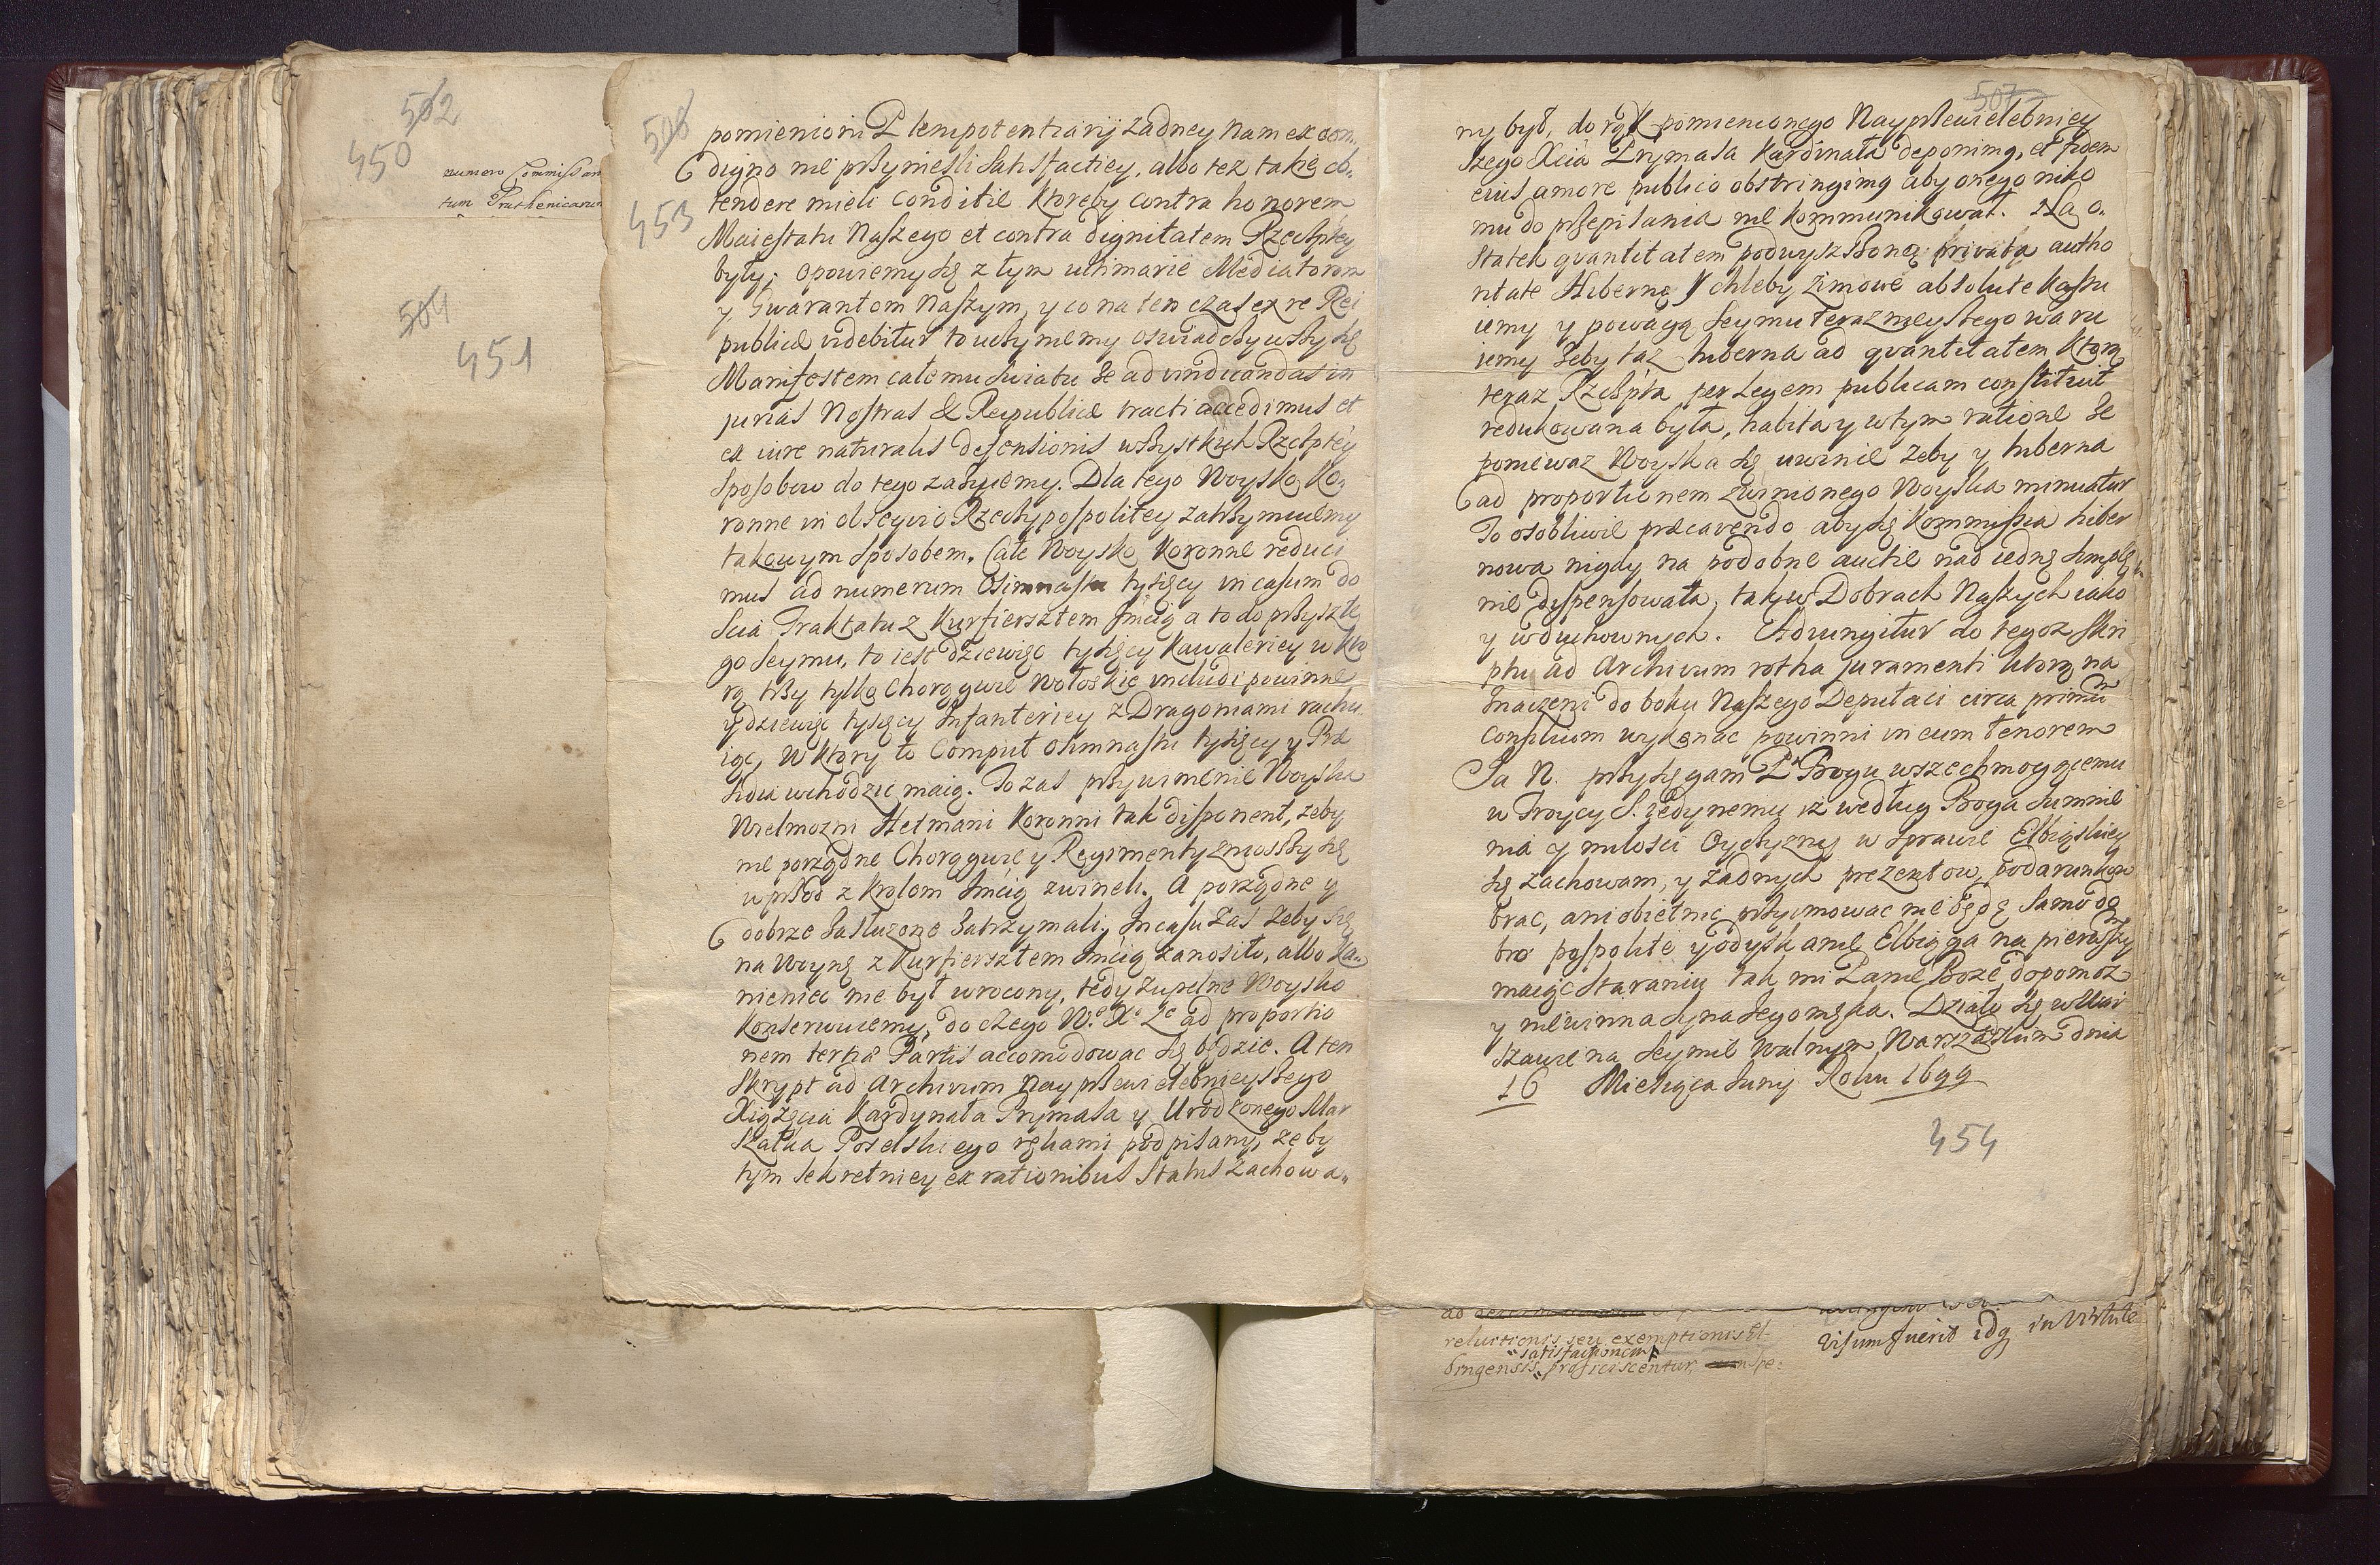 502
450
numero Commissari
tum Pruthenicarum
504
451
508
453
pomienioni Plenipotentiarij żadney nam ex con„
digno nie przynieśli satisfactiey, albo tez takie ob„
tendere mieli Conditie ktoreby contra honorem
Maiestatu Naszego et contra dignitatem Rzeczptey
były; opowiemy się z tym ultimarie Mediatorom
y Gwarantom Naszym, y co na ten czas ex re Rei
publicæ videbitur to uczyniemy oswiadczywszy się
Manifestem całemu swiatu że ad vindicandas in
jurias Nostras & Reipublicæ tracti accedimus et
ex iure naturalis defensionis wszystkich Rzeczptey
sposobow do tego zażyiemy. Dla tego Woysko Ko„
ronne in obseqvio Rzeczypospolitey zatrzymuiemy
takowym sposobem. Całe Woysko Koronne reduci
mus ad numerum Osimnastu tysięcy in casum do
scia Traktatu z Kurfiersztem Jmcią a to do przyszłe
go Seymu, to iest dziewięc tysięcy Kawaleriey w kto
rą trzy tylko Chorągwie Wołoskie includi powinne
y dziewięc tysięcy Infanteriey z Dragoniami rachu„
iąc, w ktory to Comput osimnastu tysięcy y Præ
sidia wchodzic maią. To zas zwinienie Woyska
Wielmozni Hetmani Koronni tak disponent, żeby
nie porządne Chorągwie y Regimenty zniosszy się
w przod z Krolom Jmcią zwineli. A porządne y
dobrze zasłużone zatrzymali, In casu zas żeby się
na Woynę z Kurfiersztem Jmcią zanosiło, albo Ka„
mieniec nie był wrocony, tedy zupełne Woysko
konserwuiemy, do czego W. X. L. ad proportio
nem tertiæ Partis accomodowac się będzie. A ten
Skrypt ad Archivum Nayprzewielebnieyszego
Xiążęcia Kardynała Prymasa y Urodzonego Mar
szałka Poselskiego rękami podpisany, zeby
tym sekretniey ex rationibus Status zachowa„
507
ny był, do rąk pomienionego Nayprzewielebniey
szego Xcia Prymasa Kardinała deponimg, et fidem
eius amore publico obstringimg aby onego niko
mu do przepisania nie kommunikował. Na o„
statek qvantitatem podwyszszoną privata autho
ritate Hiberną y chleby zimowe absolute kassu
iemy y powagą Seymu teraznieyszego waru
iemy żeby taż hiberna ad qvantitatem ktorą
teraz Rzeczpta per Legem publicam constituit
redukowana była, habita y w tym ratione że
poniewaz Woyska się zwinie żeby y hiberna
ad proportionem zwinionego Woyska minuatur
To osobliwie præcavendo aby się Kommissia hiber
nowa nigdy na podobne auctie nad iednę simplę
nie dispensowała, tak w Dobrach Naszych iako
y w duchownych. Adiungitur do tegoz skri
ptu ad Archivum rotha juramenti ktorą na
znaczeni do boku Naszego Deputaci circa primũ
consilium wykonac powinni in eum tenorem
Ja N. przysięgam Pu Bogu wszechmogącemu
w Troycy S. jedynemu iz według Boga Sumnie
nia y miłości Oyczyzny w sprawie Elbiąskiey
się zachowam, y żadnych prezentow, podarunkow
brac, ani obietnic przyimowac nie będę samo do
bro pospolite y odyskanie Elbiąga na pierwszym
maiąc staraniu tak mi Panie Boże dopomoz
y niewinna syna Jego męka. Działo się w War
szawie na Seymie Walnym Warszawskim dnia
16 Miesiąca Junij Roku 1699
454
reluitionis seu exemptionis El-
satisfactionem
bingensis, proficiscentur,
visum fuerit idq in virtute